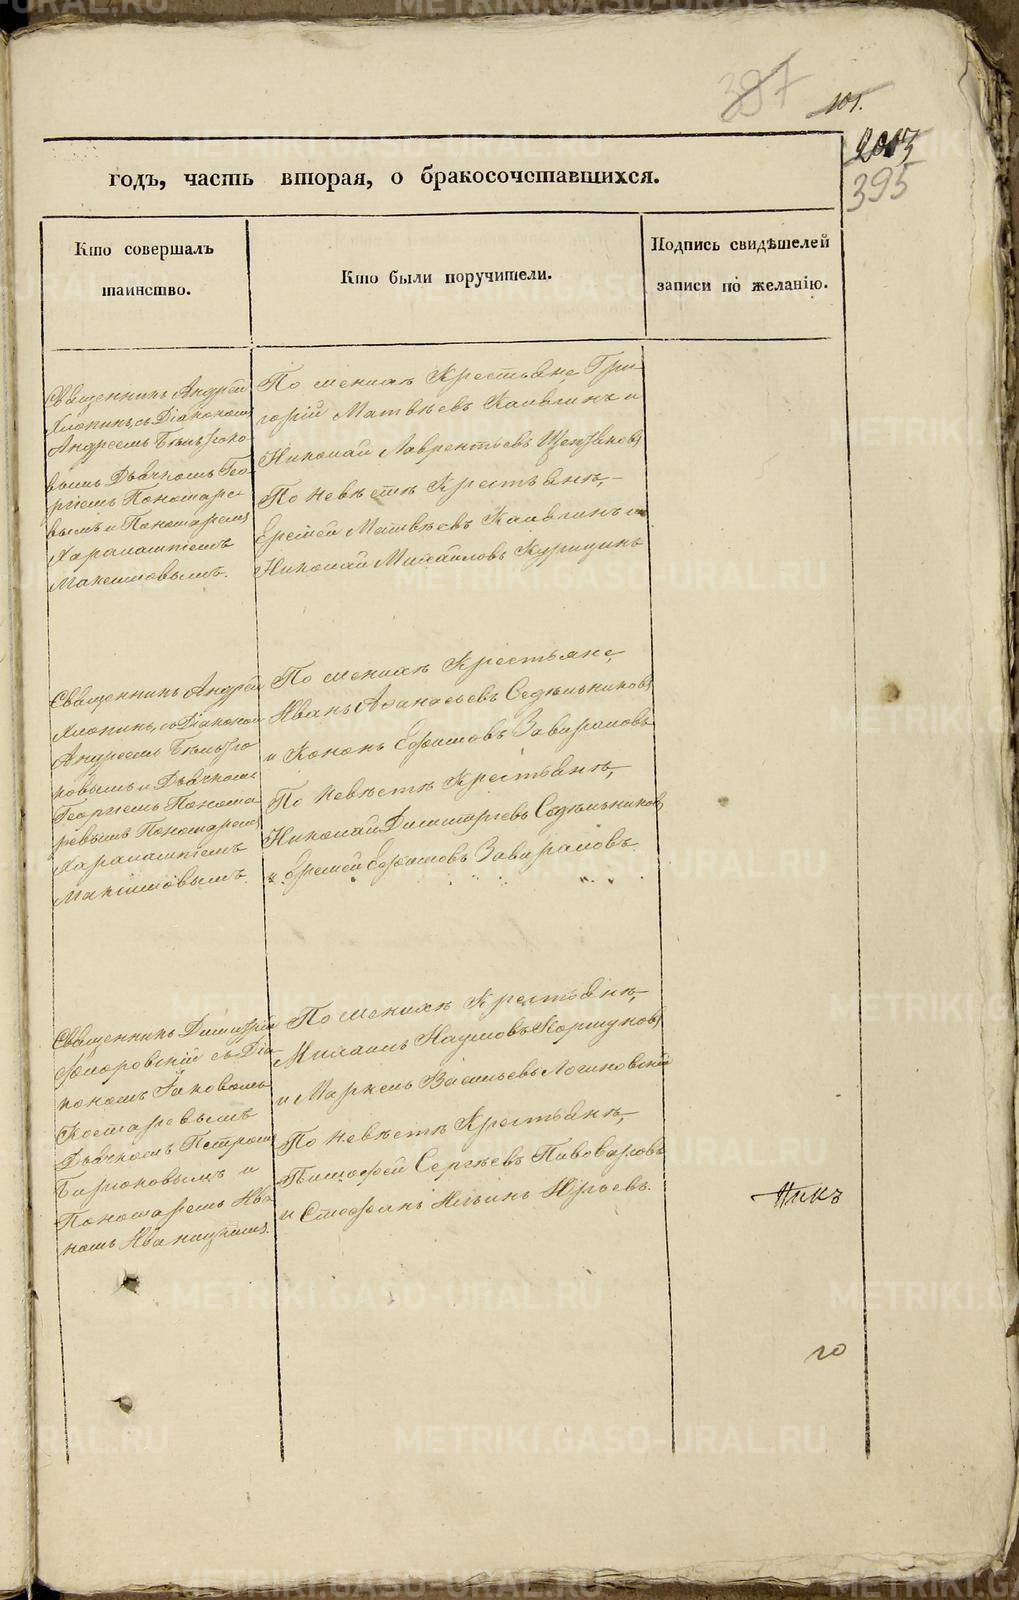 397
101.
2013
395
годъ, часть вторая, о бракосочетавшихся.
Кто совершалъ
таинство.
Кто были поручители.
Подпись свидѣтелей
записи по желанію.
Священникъ Андрей
Хлопинъ, съ Діакономъ
Андреемъ
вымъ Дьячкомъ Гео-
ргіемъ Пономаре-
вымъ и Пономаремъ
Харалампіемъ
Максимовымъ.
По женихѣ Крестьяне Гри-
горій Матвѣевъ Калягинъ и
Николай Лаврентьевъ
По невѣстѣ Крестьянѣ,
Еремей Матвѣевъ Калягинъ и
Николай Михайловъ Курицинъ
Священникъ Андрей
Хлопинъ, съ Діакономъ
Андреемъ
ковымъ и Дьячкомъ
Георгіемъ Понома-
ревымъ Пономаремъ
Харалампіемъ
Максимовымъ.
По женихѣ Крестьяне,
Иванъ Афанасьевъ Седѣльниковъ
и Кононъ Ефимовъ Завираловъ
По невѣстѣ Крестьянѣ,
Николай Димитріевъ Седѣльниковъ
и Еремей Ефимовъ Завираловъ
Священникъ Димитрій
съ Діа-
кономъ Іаковомъ
Костаревымъ
Дьячкомъ Петромъ
Бирюковымъ и
Пономаремъ Ива-
номъ
По женихѣ Крестьянѣ,
Михаилъ Наумовъ Коршуновъ
и Маркелъ Васильевъ Логиновскій
По невѣстѣ Крестьянѣ,
Тимофей Сергѣевъ Пивоваровъ
и Стефанъ Ильинъ Юрьевъ.